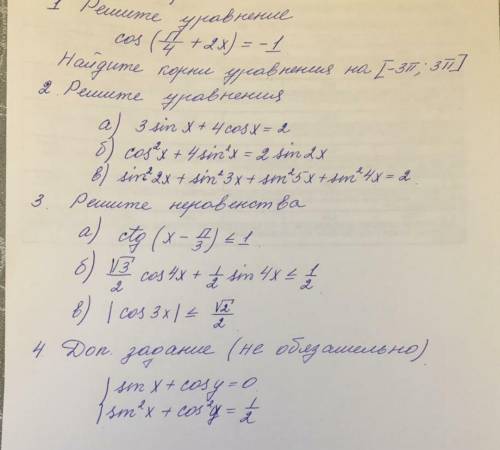 1 Решите уравнение
cos (π/4 + 2x) = -1
Найдите корни уравнения на [-3π; 3π]
2. Решите уравнения
а) 3 sin x + 4 cos x = 2
б) cos²x + 4 sin²x = 2 sin 2x
в) sin²2x + sin²3x + sin²5x + sin²4x = 2
3. Решите неравенства
а) ctg (x - π/3) ≤ 1
б) √3/2 cos 4x + 1/2 sin 4x ≤ 1/2
в) | cos 3x | ≤ √2/2
4 Доп. задание (не обязательно)
{ sin x + cos y = 0
{ sin²x + cos²y = 1/2